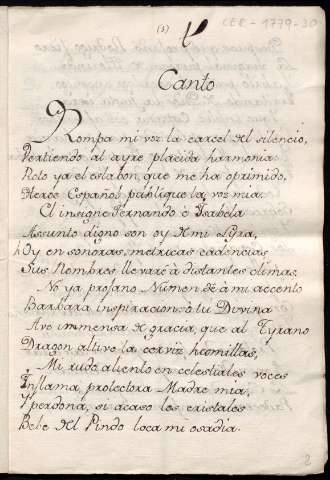 (1)
CER-1779-30
Canto
Rompa mi voz la carcel del silencio,
Vertiendo al ayre placida harmonia:
Roto ya el eslabon, que me ha oprimido,
Heroe Español publíque la voz mia.
El insigne Fernando è Isabèla
Assunto digno son oy de mi Lyra,
Oy en sonoras, metricas cadencias
Sus Nombres llevarè à distantes climas.
No ya profano Numen dè à mi accento
Barbara inspiracion: sò tu Divina
Ave immensa de gracia, que al Tyrano
Dragon altivo la cerviz homillas,
Mi rudo aliento en celestiales voces
Inflama, protectora Madre mia,
Y perdona, si acaso los cristales
Bebe del Pindo loca mi osadia.
2